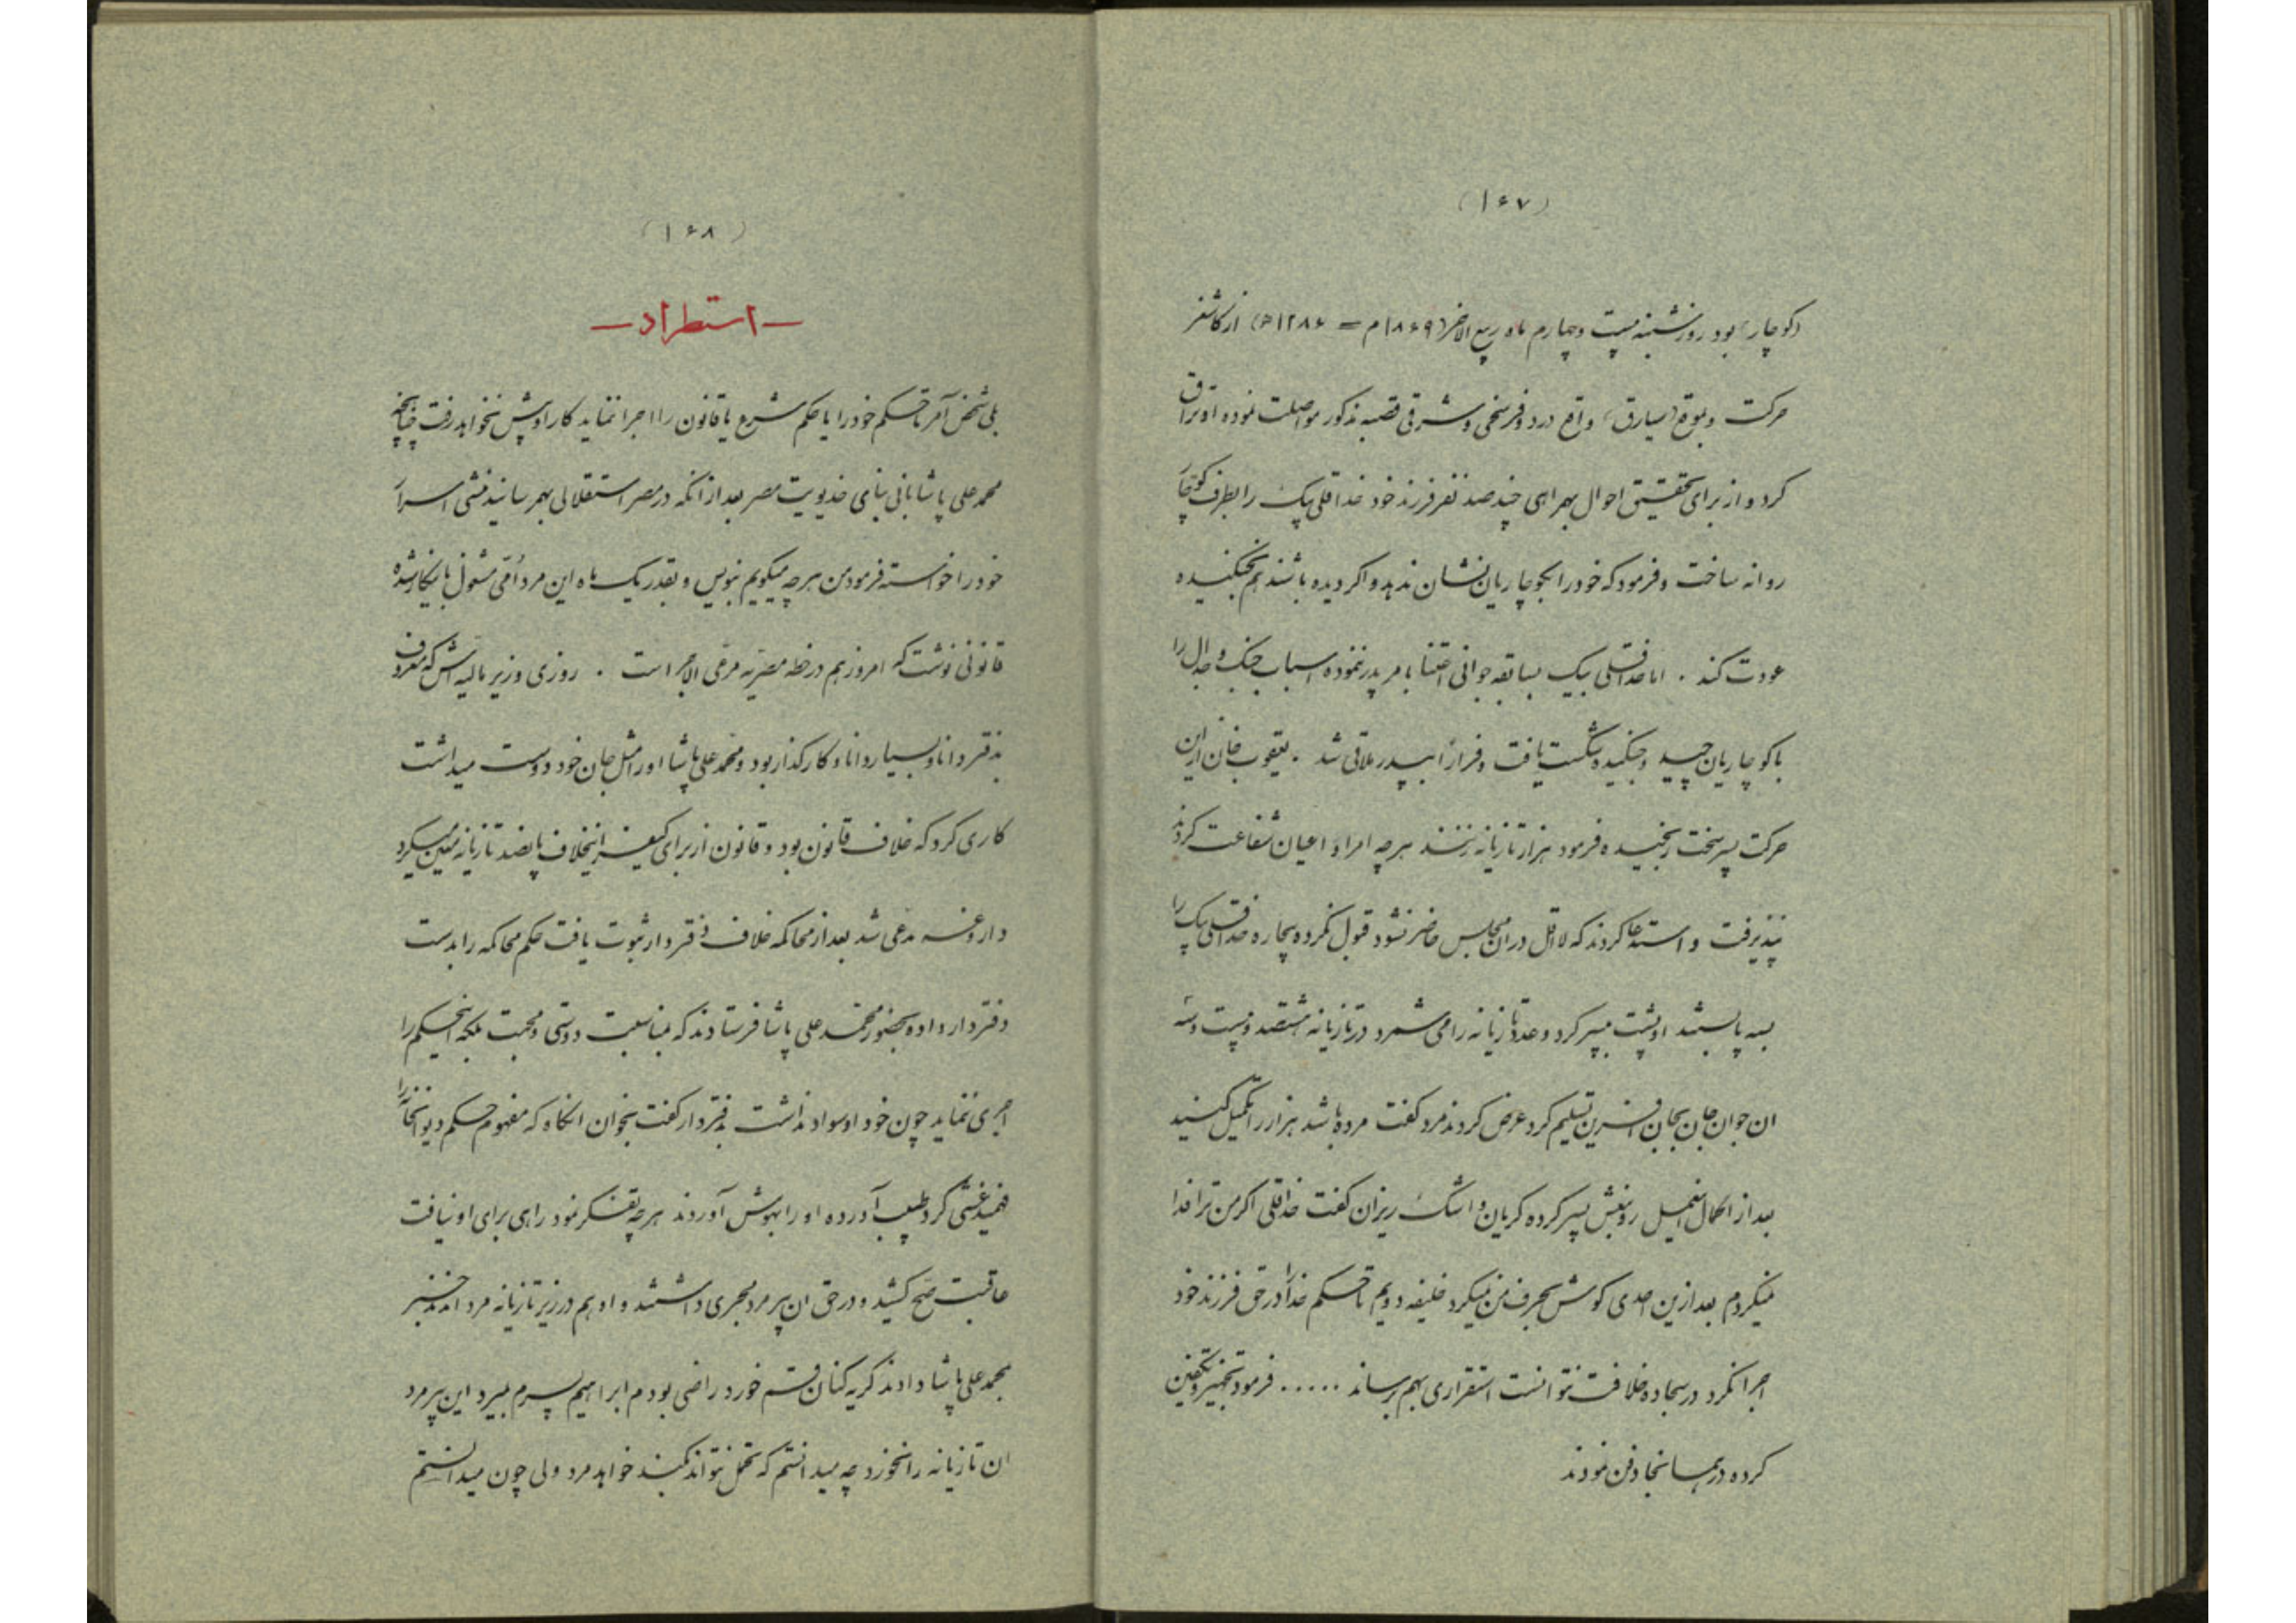 (۱۶۷)
(کوچار) بود روز شنبه بیست وچهارم ماه ربیع الاخر (۱۸۶۹م = ۱۲۸۶ه) از کاشغر
حرکت وبموقع (سیارق) واقع در دو فرسخی وشرقی قصبه مذکور مواصلت نموده اوتراق
کرد و از برای تحقیق احوال بهمراهی چند صد نفر فرزند خود خداقلی بیک را بطرف کوچار
روانه ساخت و فرمود که خود را بکوچاریان نشان ندهد و اگر دیده باشند هم نجنگیده
عودت کند . اما خداقلی بیک بسابقه جوانی اعتنا بامر پدر ننموده اسباب جنگ و جدال را
باکوچاریان چیید و جنگیده شکست یافت و فرارًا بپدر ملاقی شد . یعقوب خان از این
حرکت پسر سخت رنجیده فرمود هزار تازیانه زنند هر چه امرا و اعیان شفاعت کردند
نپذیرفت و استدعا کردند که لااقل در ان مجلس حاضر نشود قبول نکرده بیچاره خداقلی بیک را
بسه پا بستند او پشت بپسر کرد و عدد تازیانه را می شمرد در تازیانه هشتصد و بیست و سه
ان جوان جان بجان افرین تسلیم کرد عرض کردند مرد گفت مرده باشد هزار را تکمیل کنید
بعد از اکمال تکمیل رو بنعش پسر کرده گریان و اشک ریزان گفت خداقلی اگر من ترا فدا
نمیکردم بعد ازین احدی گوش بحرف من نمیکرد خلیفه دویم تا حکم خدا را در حق فرزند خود
اجرا نکرد در سجاده خلافت نتوانست استقراری بهم برساند ..... فرمود تجهیز و تکفین
کرده در همانجا دفن نمودند
(۱۶۸)
— استطراد —
بلی شخص آمر تا حکم خود را یا حکم شرع یا قانون را اجرا ننماید کار او پیش نخواهد رفت چنانچه
محمد علی پاشا بانی بنای خدیویت مصر بعد از انکه در مصر استقلالی بهم رسانید منشی اسرار
خود را خواسته فرمود من هر چه میگویم بنویس و بقدر یک ماه این مرد اُمّی مشغول باینکار شده
قانونی نوشت که امروز هم در خطه مصریّه مرعی الاجرا است . روزی وزیر مالیه اش که معروف
بدفتردار و بسیار دانا و کارگذار بود و محمد علی پاشا او را مثل جان خود دوست میداشت
کاری کرد که خلاف قانون بود و قانون از برای کیفر اینخلاف پانصد تازیانه معین میکرد
داروغه مدعی شد بعد از محاکمه خلاف دفتردار ثبوت یافت حکم محاکمه را بدست
دفتردار داده بحضور محمد علی پاشا فرستادند که بمناسبت دوستی و محبت بلکه اینحکم را
اجری ننماید چون خود او سواد نداشت بدفتردار گفت بخوان انگاه که مفهوم حکم دیوانخانه را
فهمید غشی کرد طبیب آورده او را بهوش آوردند هر چه تفکر نمود راهی برای او نیافت
عاقبت صح کشید و در حق ان پیر مرد مجری داشتند و او هم در زیر تازیانه مرد امدند خبر
بمحمد علی پاشا دادند گریه کنان قسم خورد راضی بودم ابراهیم پسرم بمیرد این پیر مرد
ان تازیانه را نخورد چه میدانستم که تحمل نتواند کند خواهد مرد ولی چون میدانستم